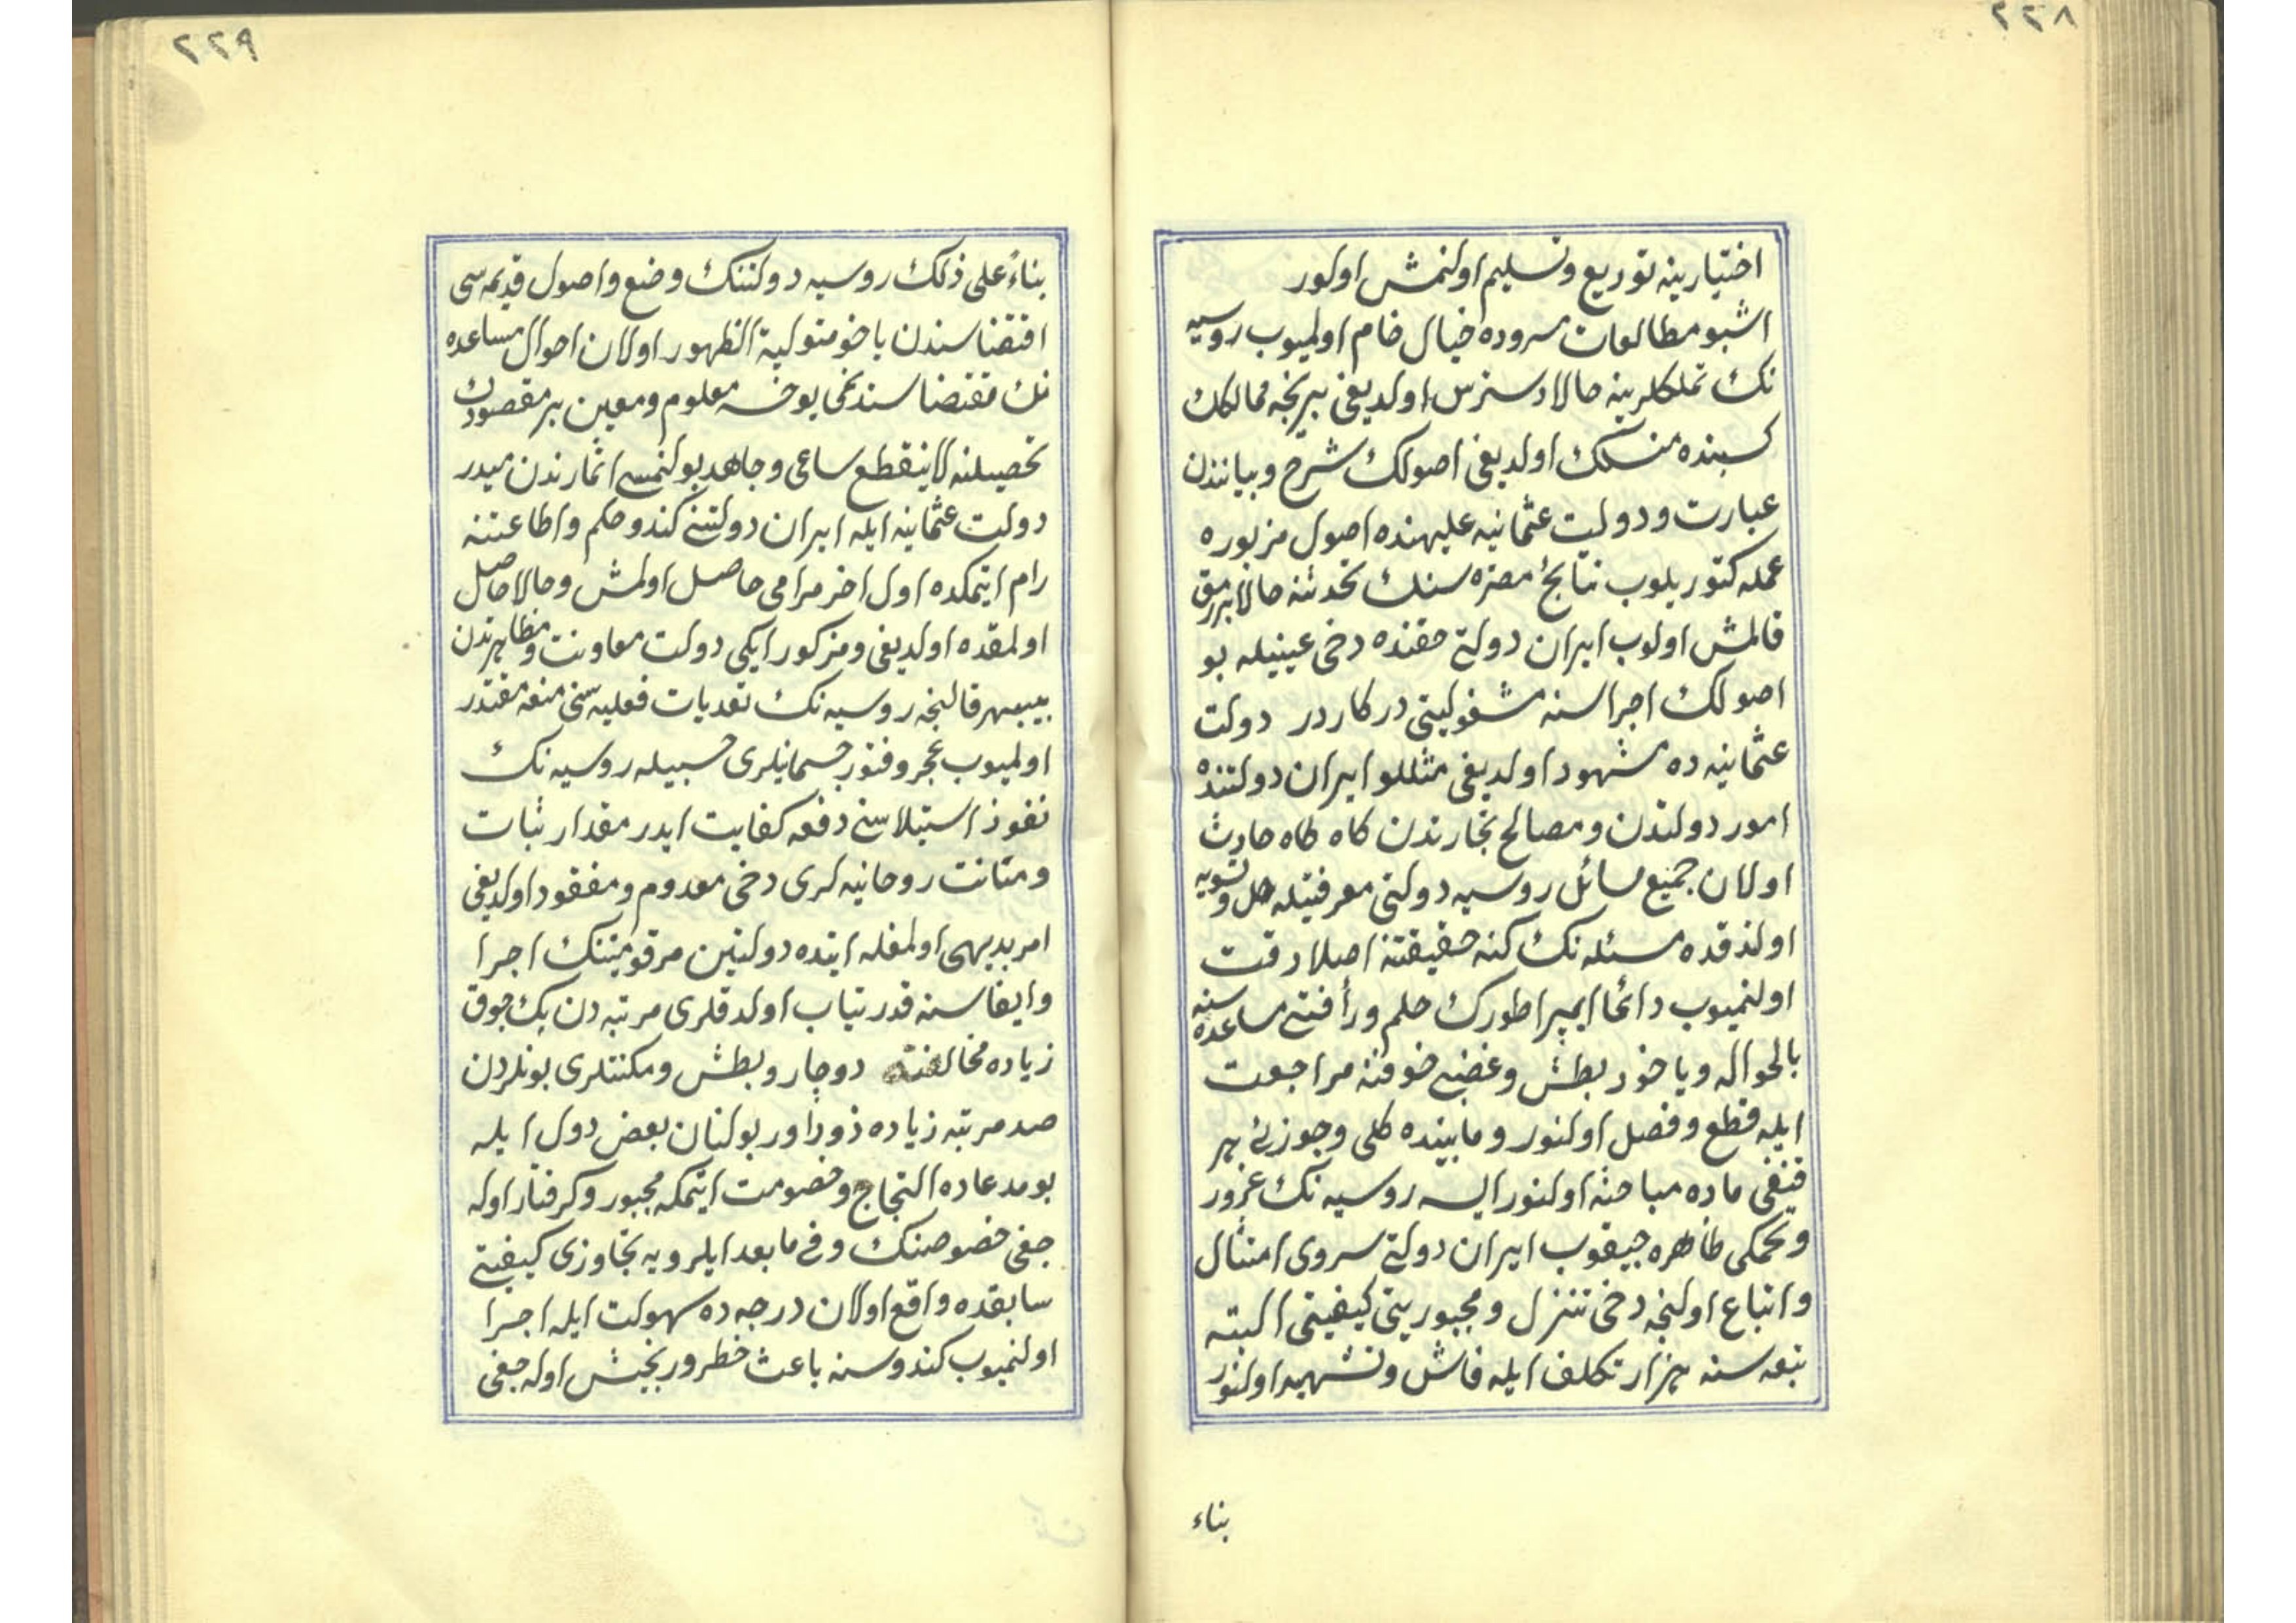 ٢٢٨
اختيارينه توديع وتسليم اولنمش اولور
اشبو مطالعات سروده خيال خام اولميوب روسيه
نك تملكلرينه حالا دسترس اولديغى بر نجه ممالكك
كسبنده منسلك اولديغى اصولك شرح وبيانندن
عبارت ودولت عثمانيه عليهنده اصول مزبوره
عمله كتوريلوب نتايج مضره سنك تحدثنه حالا بر رمق
قالمش اولوب ايران دولتى حقنده دخى عينيله بو
اصولك اجراسنه مشغوليتى دركاردر دولت
عثمانيه ده مشهود اولديغى مثللو ايران دولتنده
امور دولتدن ومصالح تجارندن كاه كاه حادث
اولان جميع مسائل روسيه دولتى معرفتيله حل وتسويه
اولندقده مسئله نك كنه حقيقتنه اصلا دقت
اولنميوب دائما ايمپراطورك حلم ورأفتى مساعده سنه
بالحواله وياخود بطش وغضبى خوفنه مراجعت
ايله قطع وفصل اولنور ومابينده كلى وجوزئى هر
قنغى ماده مباحثه اولنور ايسه روسيه نك غرور
وتحكمى ظاهره چيقوب ايران دولتى سروى امتثال
واتباع اولنجه دخى تنزل ومجبوريتى كيفيتى البته
تبعه سنه هزار تكلف ايله فاش وتشهير اولنور
بناء
٢٢٩
بناءً على ذلك روسيه دولتنك وضع واصول قديمه سى
اقتضاسندن ياخو متولية الظهور اولان احوال مساعده
نك مقتضاسندنمى يوخسه معلوم ومعين بر مقصودك
تحصيلنه لاينقطع ساعى وجاهد بولنمسى اثارندن ميدر
دولت عثمانيه ايله ايران دولتنى كندو حكم واطاعتنه
رام ايتمكده اول اخر مرامى حاصل اولمش وحالا حاصل
اولمقده اولديغى ومزكور ايكى دولت معاونت ومظاهرتدن
بيبهر قالنجه روسيه نك تعديات فعليه سنى منعه مقتدر
اولميوب عجز وفتور جسمانيلرى حسبيله روسيه نك
نفوذ استيلاسنى دفعه كفايت ايدر مقدار ثبات
ومتانت روحانيه لرى دخى معدوم ومفقود اولديغى
امر بديهى اولمغله اينده دولتين مرقومينك اجرا
وايفاسنه قدرتياب اولدقلرى مرتبه دن پك چوق
زياده مخالفته دوچار وبطش ومكنتلرى بونلردن
صد مرتبه زياده زورآور بولنان بعض دول ايله
بو مدعاده التجاج وخصومت ايتمكه مجبور وكرفتار اوله
جغى خصوصنك وفى مابعد ايلرويه تجاوزى كيفيتى
سابقده واقع اولان درجه ده سهولت ايله اجرا
اولنميوب كندوسنه باعث خطر ورنجش اوله جغى